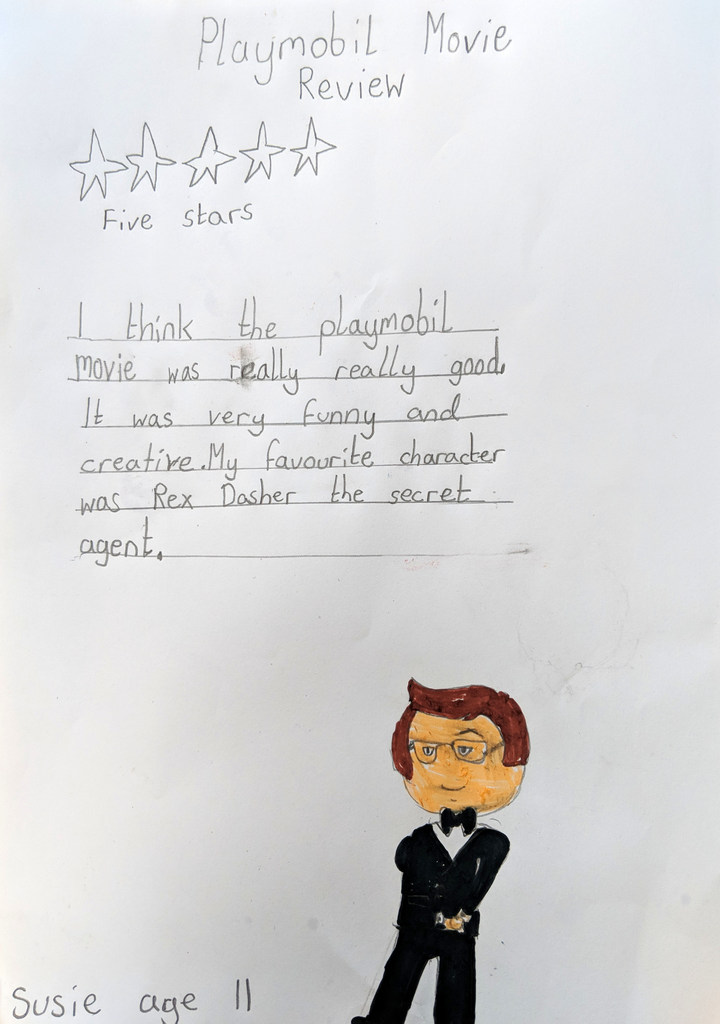 Playmobil Movie
Review
Five stars
I think the playmobil
movie was really really good.
It was very funny and
creative. My favourite character
was Rex Dasher the secret
agent.
Susie age 11